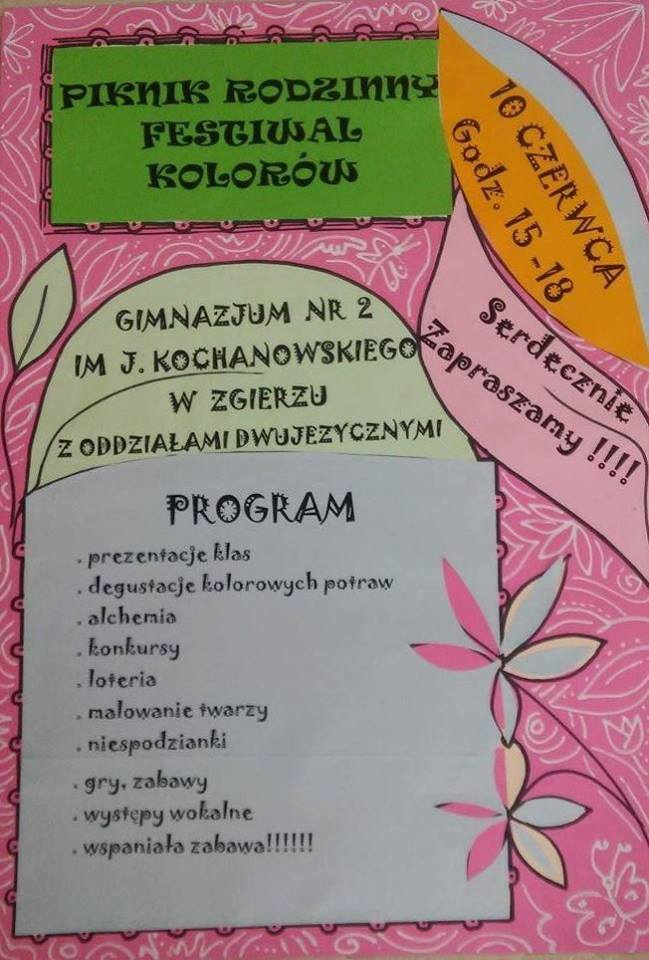 PIKNIK RODZINNY
FESTIWAL
KOLORÓW
10 CZERWCA
Godz. 15 -18
Serdecznie
Zapraszamy !!!!
GIMNAZJUM NR 2
IM J. KOCHANOWSKIEGO
W ZGIERZU
Z ODDZIAŁAMI DWUJĘZYCZNYMI
PROGRAM
. prezentacje klas
. degustacje kolorowych potraw
. alchemia
. konkursy
. loteria
. malowanie twarzy
. niespodzianki
. gry, zabawy
. występy wokalne
. wspaniała zabawa!!!!!!